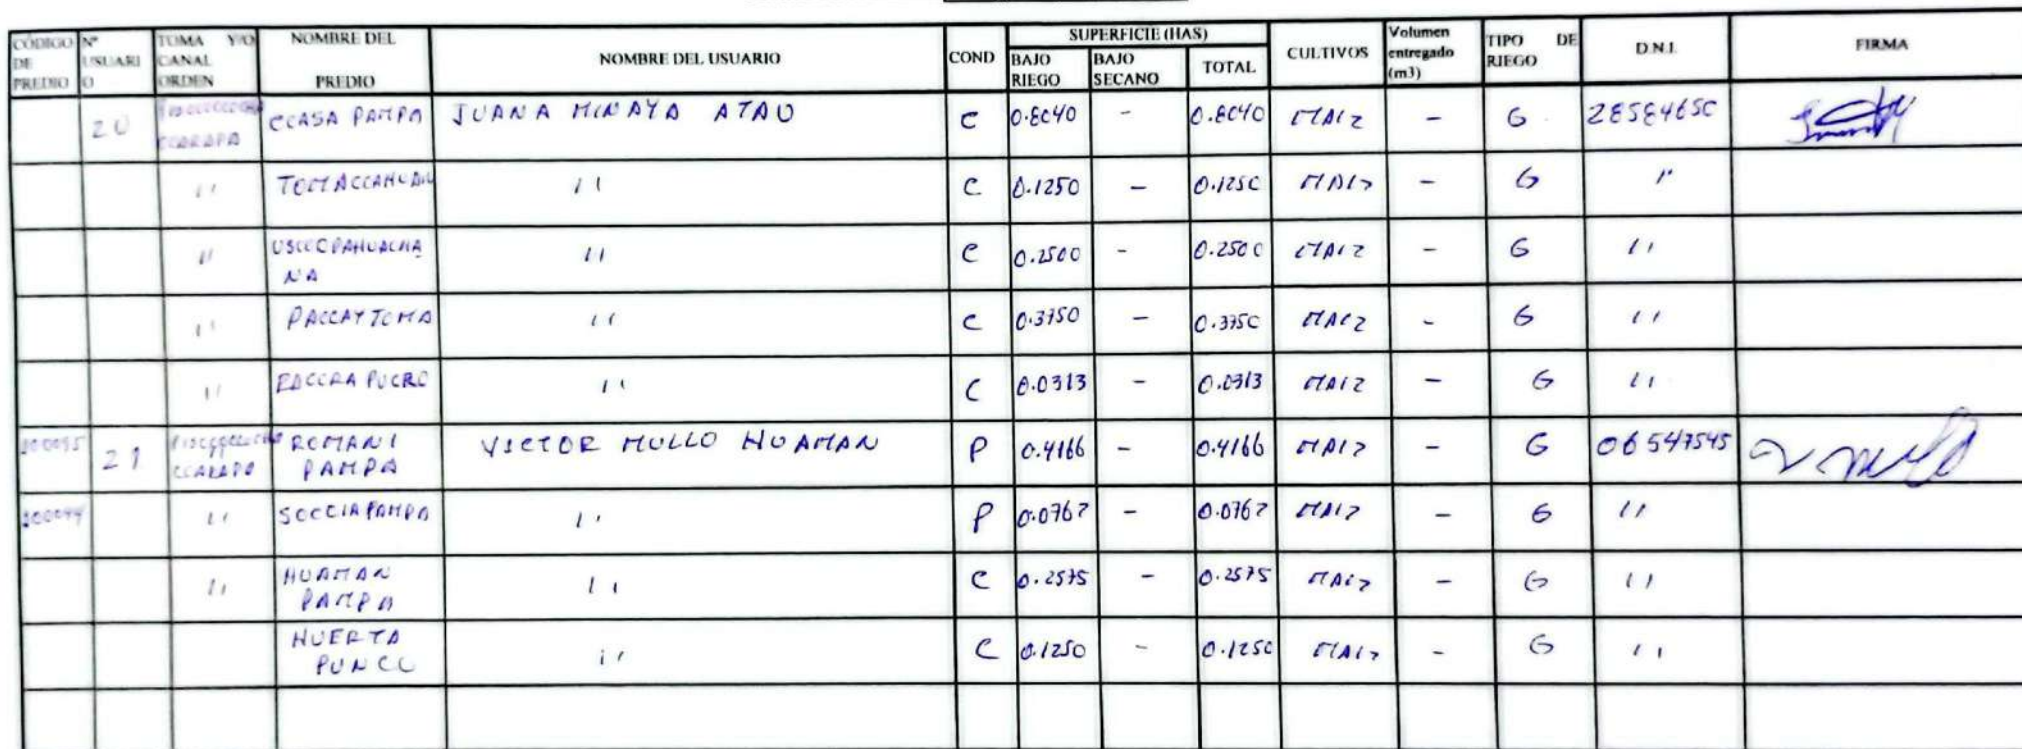 CÓDIGO DE PREDIO Nº USUARIO TOMA Y/O CANAL ORDEN NOMBRE DEL PREDIO NOMBRE DEL USUARIO COND SUPERFICIE (HAS) BAJO RIEGO BAJO SECANO TOTAL CULTIVOS Volumen entregado (m3) TIPO DE RIEGO D.N.I. FIRMA
20 CCARAPA CCASA PAMPA JUANA MINAYA ATAO C 0.8040 - 0.8040 MAIZ - G 28584650
" TOMACCAHUAN " C 0.1250 - 0.1250 MAIZ - G "
" USCCCPAHUACHA " C 0.2500 - 0.2500 MAIZ - G "
NA
" PACCAYTOMA " C 0.3750 - 0.3750 MAIZ - G "
" PUCRO " C 0.0313 - 0.0313 MAIZ - G "
21 CCARAPA ROMANI PAMPA VICTOR MULLO HUAMAN P 0.4166 - 0.4166 MAIZ - G 06547545
" SOCCIAPAMPA " P 0.0767 - 0.0767 MAIZ - G "
" HUAMAN PAMPA " C 0.2575 - 0.2575 MAIZ - G "
HUERTA PUNCC " C 0.1250 - 0.1250 MAIZ - G "